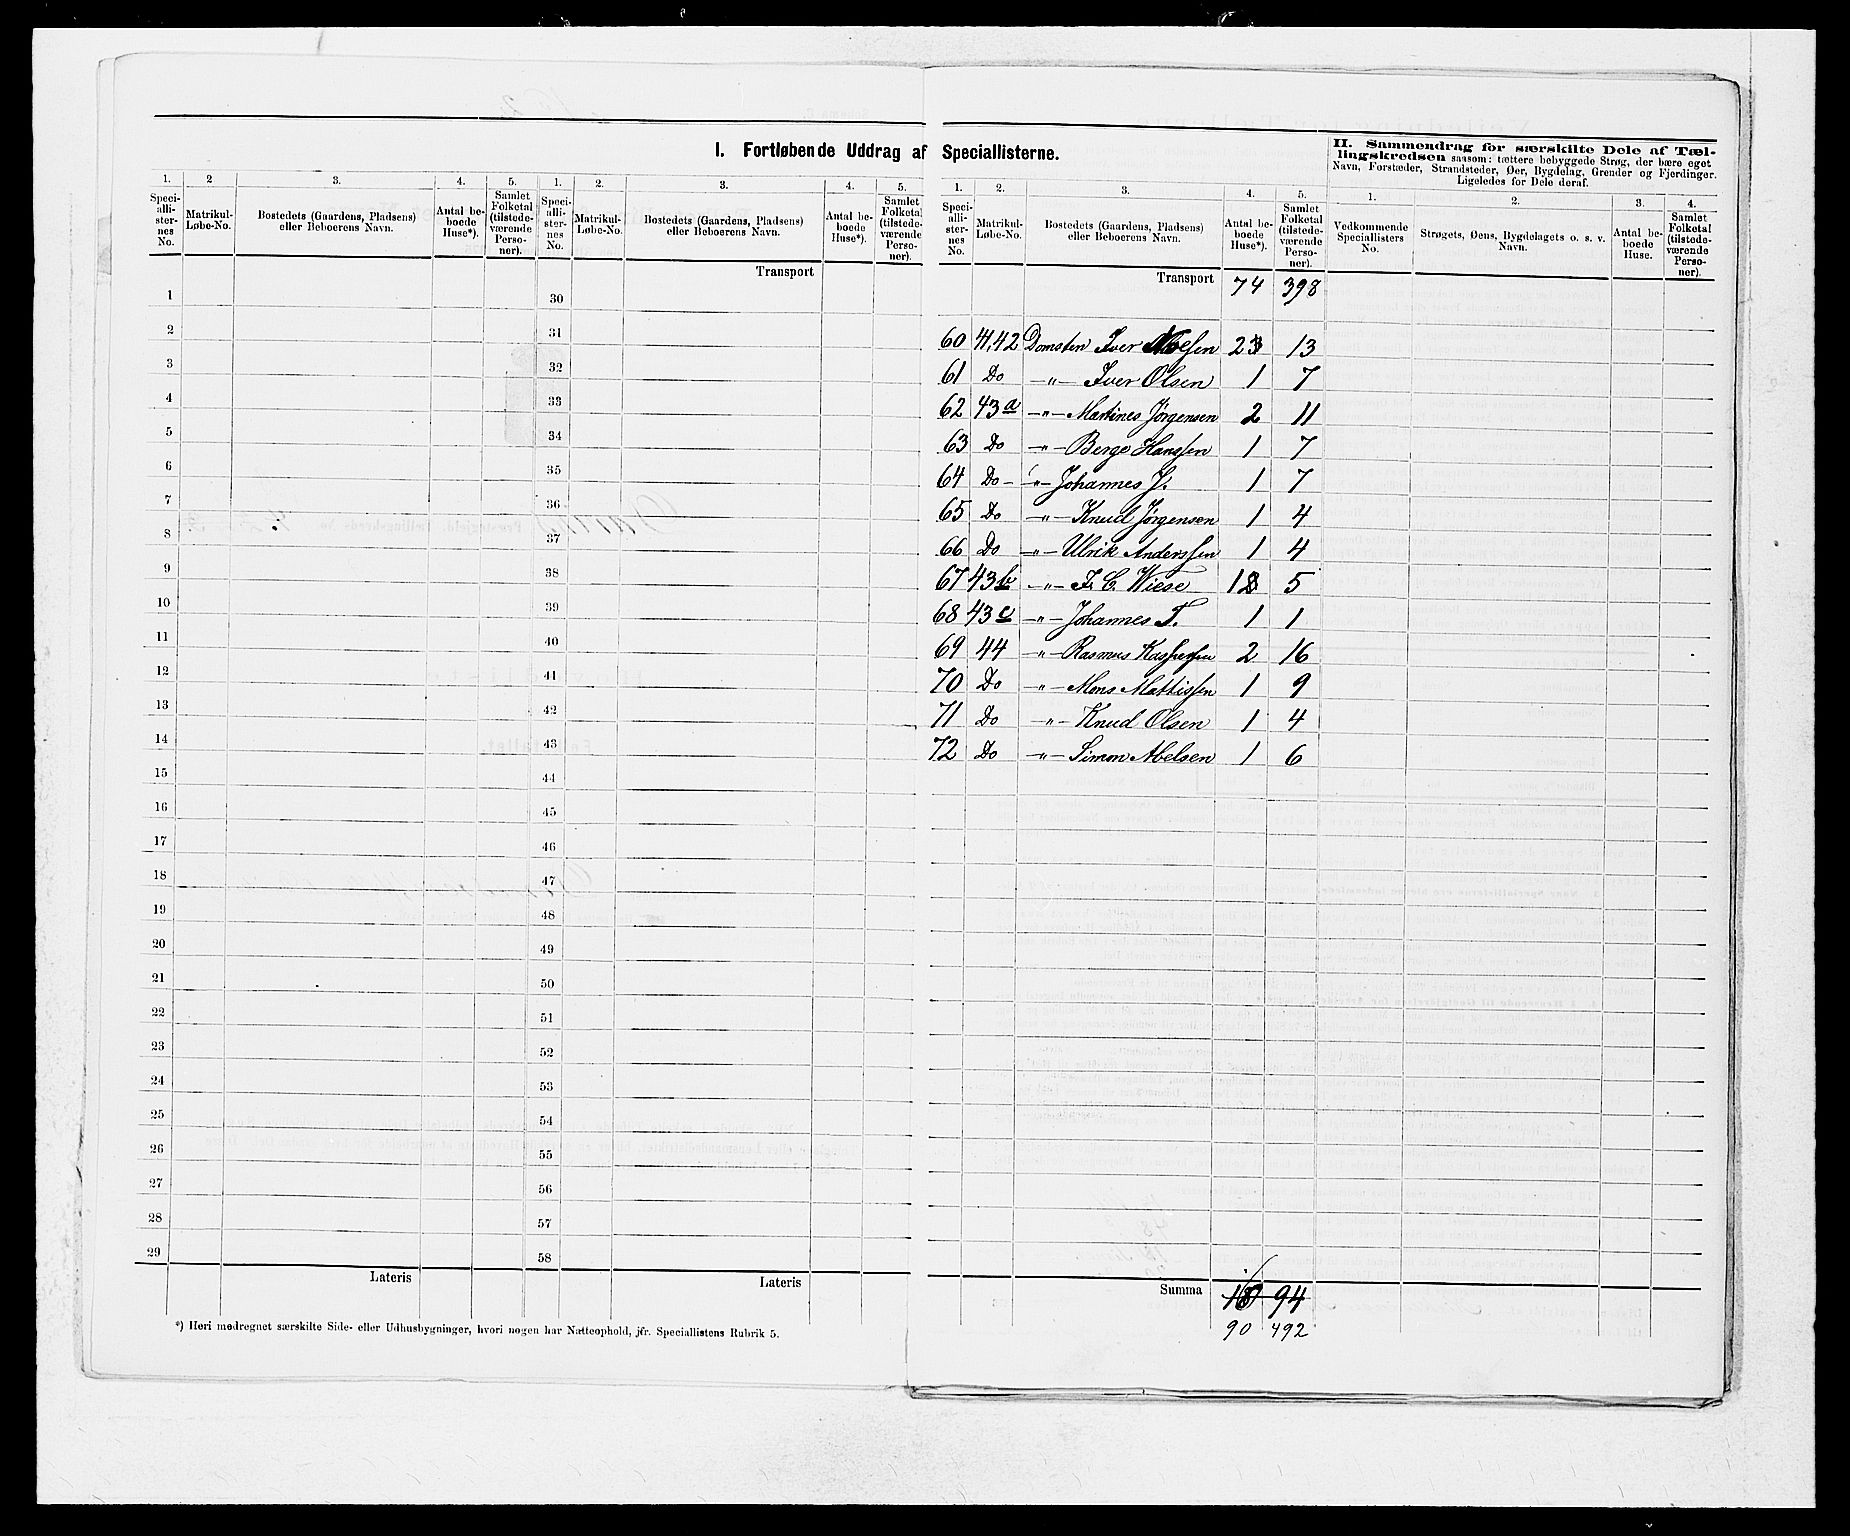 I. Fortløbende Uddrag af Speciallisterne.
II. Sammendrag for særskilte Dele af Tæl-
lingskredsen saasom: tættere bebyggede Strøg, der bære eget
Navn, Forstæder, Strandsteder, Øer, Bygdelag, Grender og Fjerdinger.
Ligeledes for Dele deraf.
1. 2 3. 4. 5. 1. 2. 3. 4. 5. 1. 2. 3. 4. 5. 1. 2. 3. 4.
Speci-alli-ster-nes No. Matrikul-Løbe-No. Bostedets (Gaardens, Pladsens) eller Beboerens Navn. Antal be-boede Huse*). Samlet Folketal (tilstede-værende Perso-ner).
Speci-alli-ster-nes No. Matrikul-Løbe-No. Bostedets (Gaardens, Pladsens) eller Beboerens Navn. Antal be-boede Huse*). Samlet Folketal (tilstede-værende Perso-ner).
Speci-alli-ster-nes No. Matrikul-Løbe-No. Bostedets (Gaardens, Pladsens) eller Beboerens Navn. Antal be-boede Huse*). Samlet Folketal (tilstede-værende Perso-ner).
Vedkommende Speciallisters No. Strøgets, Øens, Bygdelagets o. s. v. Navn. Antal be-boede Huse. Samlet Folketal (tilstede-værende Perso-ner).
Transport
1
2
3
4
5
6
7
8
9
10
11
12
13
14
15
16
17
18
19
20
21
22
23
24
25
26
27
28
29
Lateris
30
31
32
33
34
35
36
37
38
39
40
41
42
43
44
45
46
47
48
49
50
51
52
53
54
55
56
57
58
Lateris
Transport 74 398
60 41,42 Domsten Iver 2 13
61 Do -"- Iver Olsen 1 7
62 43a -"- Martines Jørgensen 2 11
63 Do -"- Berge Hanssen 1 7
64 Do -"- Johannes J. 1 7
65 Do -"- Knud Jørgensen 1 4
66 Do -"- Ulrik Anderssen 1 4
67 43b -"- Fr. C. Wiese 1 5
68 43c -"- Johannes T. 1 1
69 44 -"- Rasmus Kaspersen 2 16
70 Do -"- Mons Mattissen 1 9
71 Do -"- Knud Olsen 1 4
72 Do -"- Simon Abelsen 1 6
Summa 16 94
90 492
*) Heri medregnet særskilte Side- eller Udhusbygninger, hvori nogen har Natteophold, jfr. Speciallistens Rubrik 5.